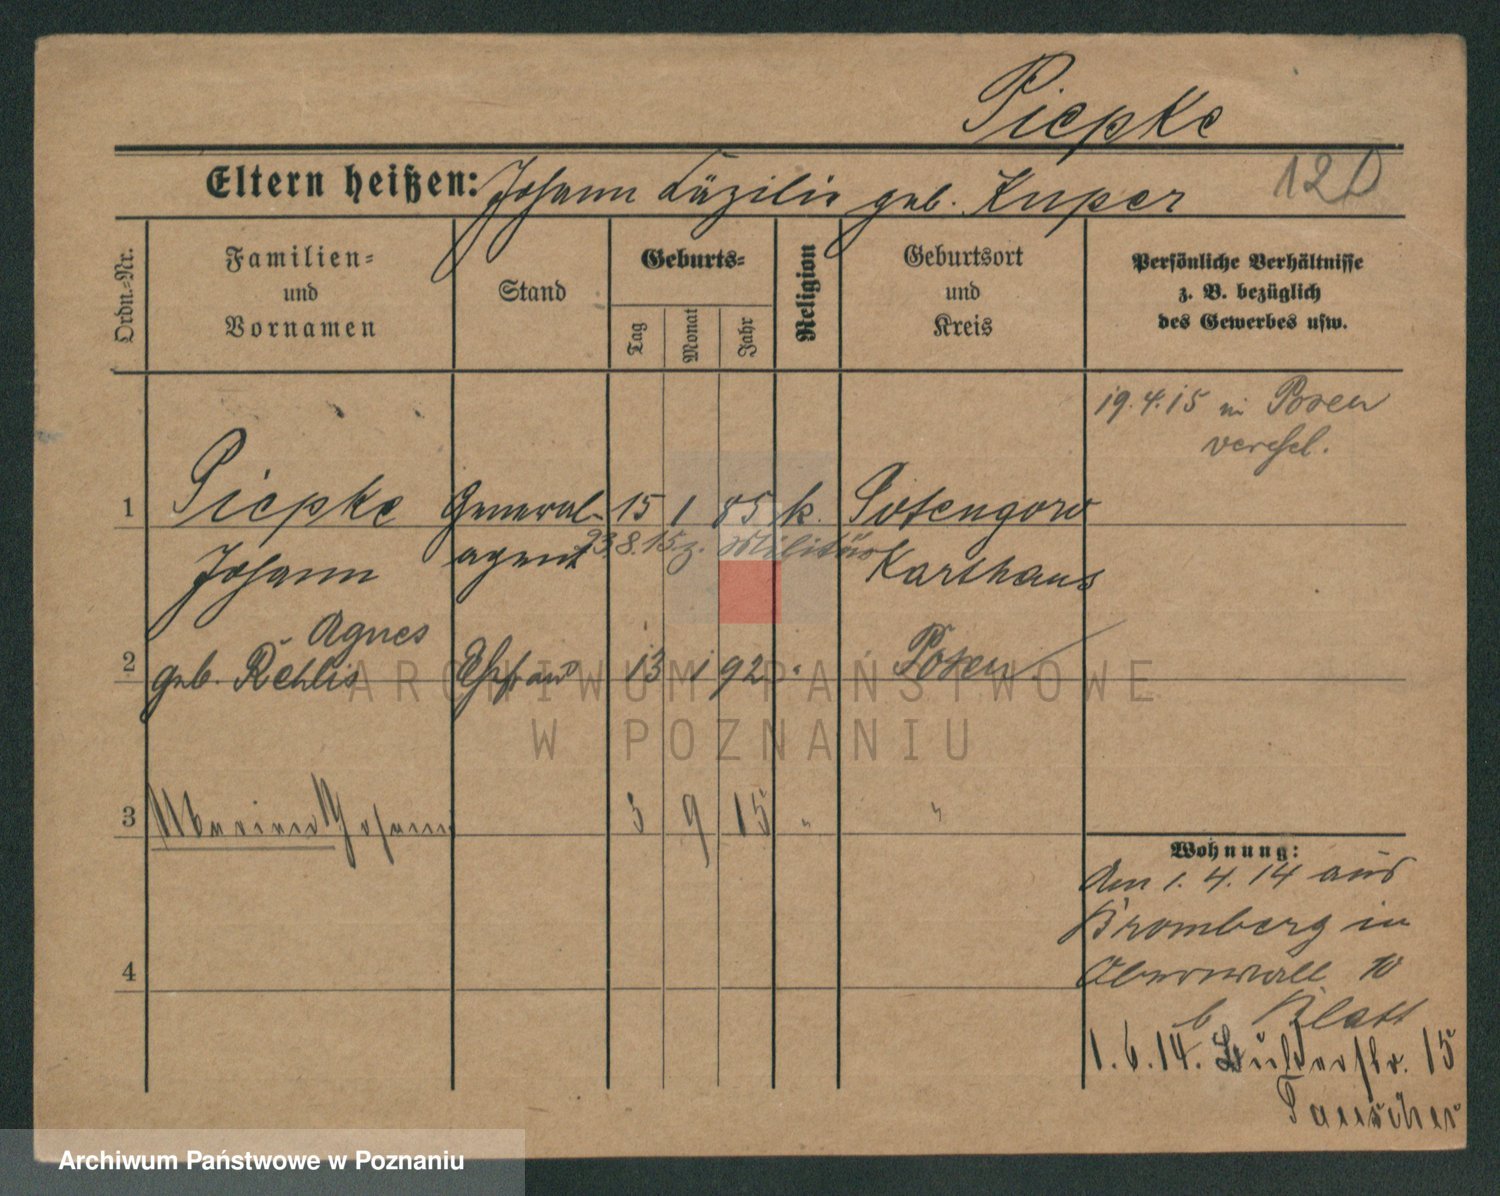 Piepke
Eltern heißen: Johann Läzilie geb. Kuper
120
Ordn.-Nr.
Familien-
und
Vornamen
Stand
Geburts-
Tag
Monat
Jahr
Religion
Geburtsort
und
Kreis
Persönliche Verhältnisse
z. B. bezüglich
des Gewerbes usw.
19.4.15 in Posen
verehel.
1 Piepke General- 15 1 85 k.
Johann agent 23.8.15 z. Militär Karthaus
Agnes
2 geb. Rehlis Ehefrau 13 1 92 " Posen
3 Johann 3 9 15 " "
4
Wohnung:
Am 1.4.14 aus
Bromberg in
Oberwall 10
b Blatt
1.6.14. 15
Tauscher
ARCHIWUM PAŃSTWOWE
W POZNANIU
Archiwum Państwowe w Poznaniu